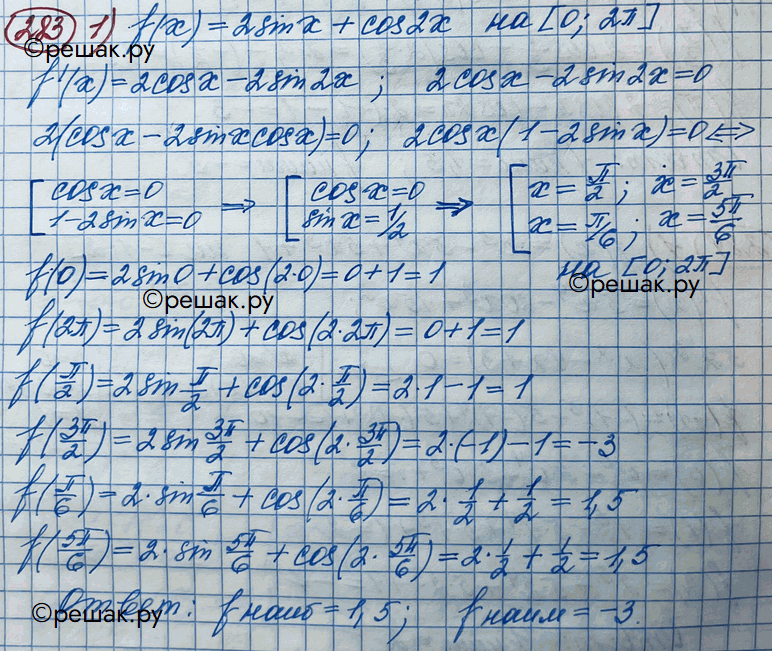 283 1) f(x) = 2sinx + cos2x на [0; 2π]
©решак.ру
f'(x) = 2cosx − 2sin2x ; 2cosx − 2sin2x = 0
2(cosx − 2sinxcosx) = 0; 2cosx(1 − 2sinx) = 0 <=>
[ cosx = 0 => [ cosx = 0 => [ x = π/2 ; x = 3π/2
1 − 2sinx = 0 sinx = 1/2 x = π/6 ; x = 5π/6
f(0) = 2sin0 + cos(2·0) = 0 + 1 = 1 на [0; 2π]
©решак.ру ©решак.ру
f(2π) = 2sin(2π) + cos(2·2π) = 0 + 1 = 1
f(π/2) = 2sin π/2 + cos(2·π/2) = 2·1 − 1 = 1
f(3π/2) = 2sin 3π/2 + cos(2·3π/2) = 2·(−1) − 1 = −3
f(π/6) = 2·sin π/6 + cos(2·π/6) = 2·1/2 + 1/2 = 1,5
f(5π/6) = 2·sin 5π/6 + cos(2·5π/6) = 2·1/2 + 1/2 = 1,5
Ответ: f наиб = 1,5; f наим = −3.
©решак.ру ©решак.ру